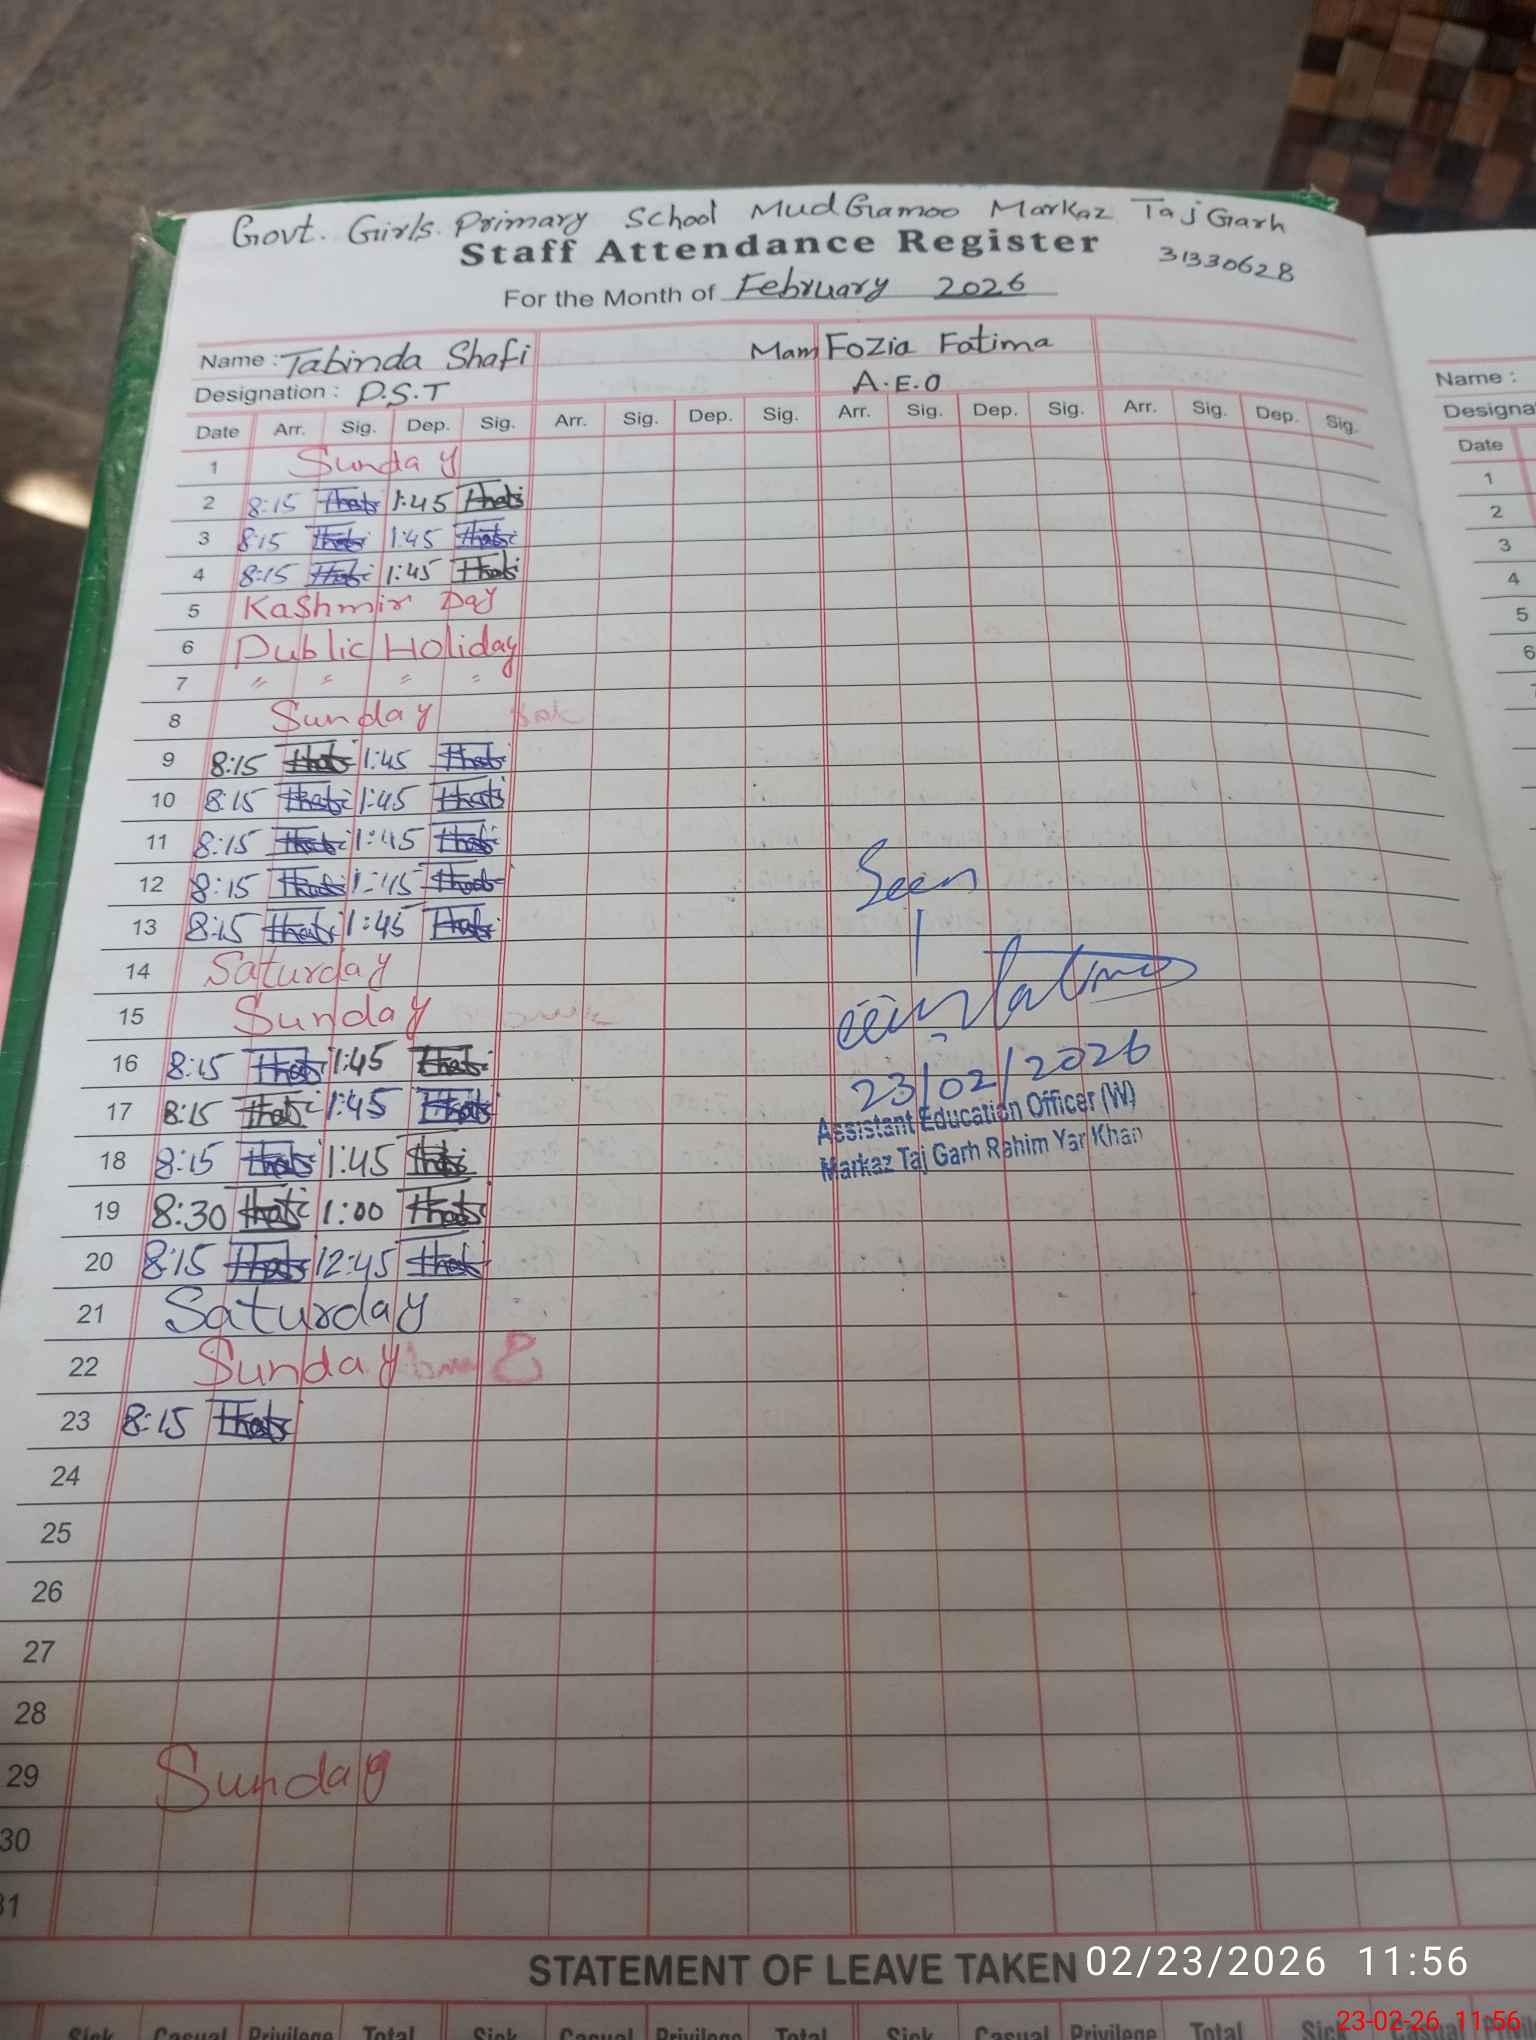 Govt. Girls. Primary School MudGamoo Markaz Taj Garh
Staff Attendance Register 31330628
For the Month of February 2026
Name : Tabinda Shafi Mam Fozia Fatima
Designation : P.S.T A.E.O
Date Arr. Sig. Dep. Sig. Arr. Sig. Dep. Sig. Arr. Sig. Dep. Sig. Arr. Sig. Dep. Sig.
1 Sunday
2 8:15 1:45
3 8:15 1:45
4 8:15 1:45
5 Kashmir Day
6 Public Holiday
7 " " " "
8 Sunday
9 8:15 1:45
10 8:15 1:45
11 8:15 1:45
12 8:15 1:45
13 8:15 1:45
14 Saturday
15 Sunday
16 8:15 1:45
17 8:15 1:45
18 8:15 1:45
19 8:30 1:00
20 8:15 12:45
21 Saturday
22 Sunday
23 8:15
24
25
26
27
28
29 Sunday
30
31
Seen
23/02/2026
Assistant Education Officer (W)
Markaz Taj Garh Rahim Yar Khan
STATEMENT OF LEAVE TAKEN
Sick Casual Privilege Total Sick Casual Privilege Total Sick Casual Privilege Total
Name :
Designa
Date
1
2
3
4
5
6
02/23/2026 11:56
23-02-26 11:56